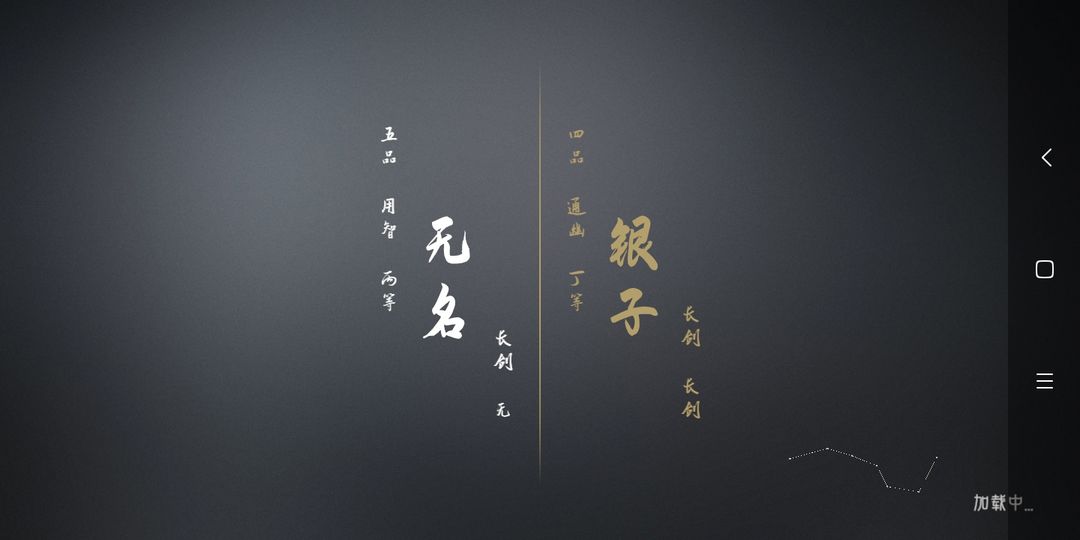 五品 用智 丙等
无名
长剑 无
四品 通幽 丁等
银子
长剑 长剑
加载中...